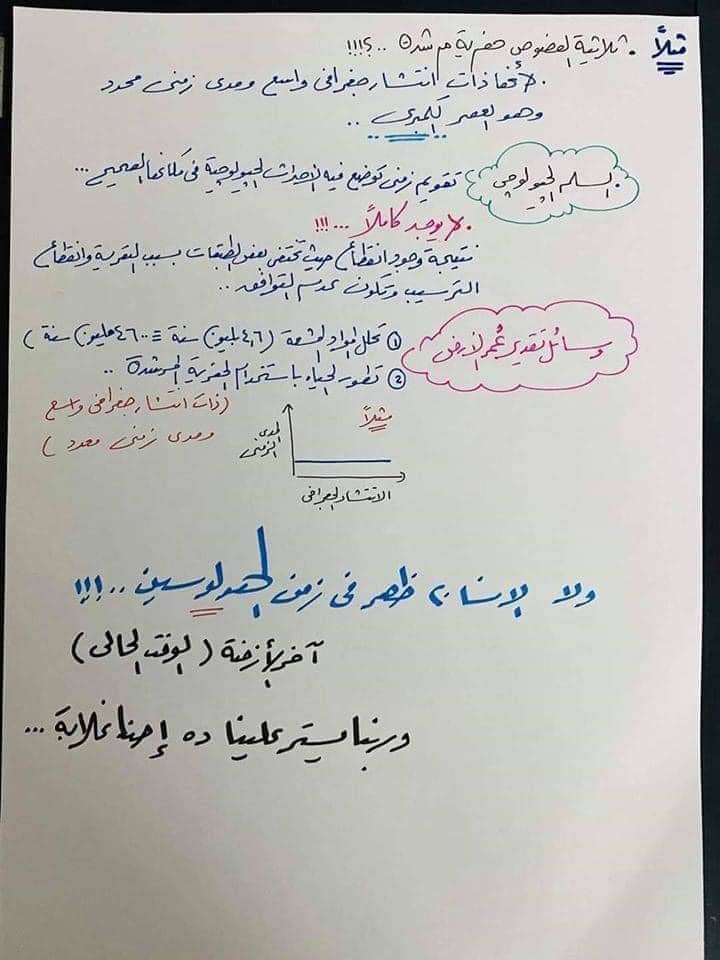 مثلاً . ثلاثية الفصوص حفرية مرشدة ..؟!!!
. لأنها ذات انتشار جغرافى واسع ومدى زمنى محدد
وهو العصر الكمبرى ..
. السلم الجيولوجى
تقويم زمنى توضع فيه الأحداث الجيولوجية فى مكانها الصحيح ...
. لا يوجد كاملاً ... !!!
نتيجة وجود انقطاع حيث تختفى بعض الطبقات بسبب التعرية وانقطاع
الترسيب وتكون عدم التوافق ..
وسائل تقدير عُمر الأرض
① تحلل المواد المشعة (٤,٦ بليون سنة = ٤٦٠٠ مليون سنة)
② تطور الحياه باستخدام الحفرية المرشدة ..
(ذات انتشار جغرافى واسع
ومدى زمنى محدد)
مثلاً
المدى
الزمنى
الانتشار الجغرافى
ولا الإنسان ظهر فى زمن الهولوسين ..!!!
آخر الأزمنة (الوقت الحالى)
وربنا يستر علينا ده إحنا غلابة ...